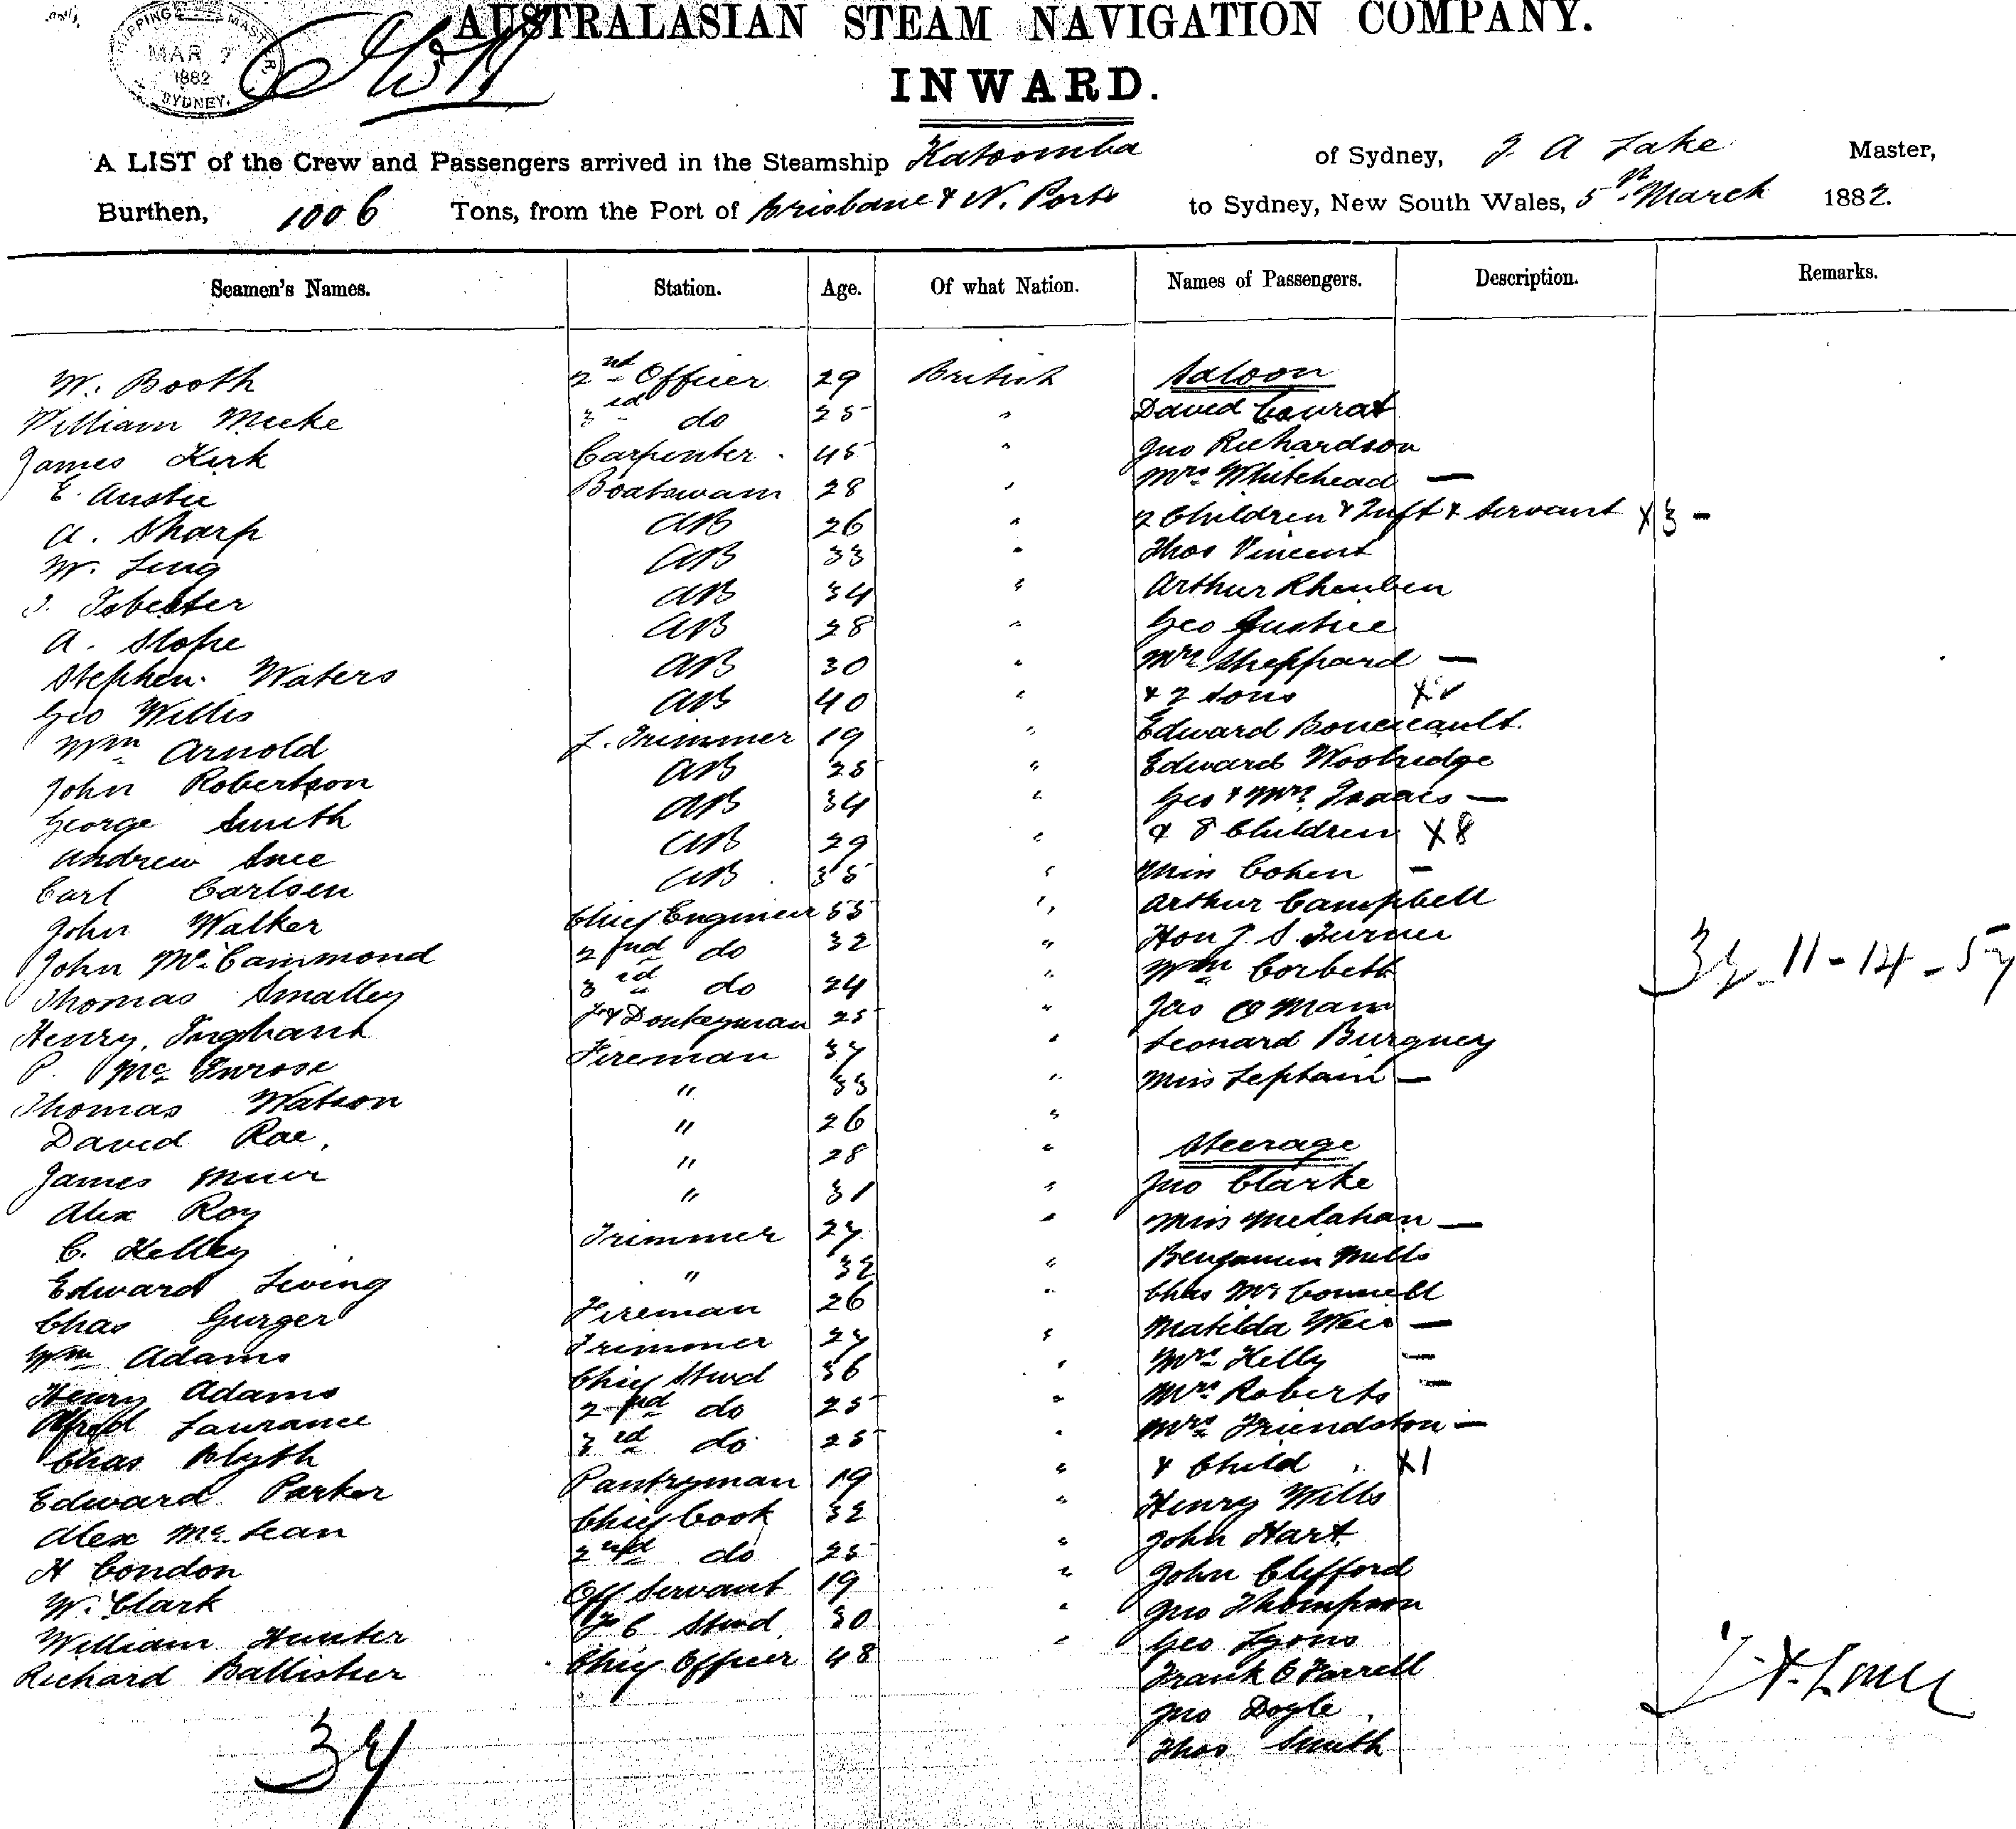 SHIPPING MASTER
MAR 7
1882
SYDNEY.
AUSTRALASIAN STEAM NAVIGATION COMPANY.
INWARD.
A LIST of the Crew and Passengers arrived in the Steamship Katoomba of Sydney, J. A Lake Master,
Burthen, 1006 Tons, from the Port of Brisbane & N. Ports to Sydney, New South Wales, 5th March 1882.
Seamen's Names. Station. Age. Of what Nation. Names of Passengers. Description. Remarks.
W. Booth 2nd Officer 29 British Saloon
William Meeke 3rd do 25 " David
James Kirk Carpenter 45 " Jno Richardson
E. Boatswain 28 " Mrs Whitehead —
A. Sharp AB 26 " 2 Children & Inft & Servant X 3 -
W. Ling AB 33 " Thos Vincent
AB 34 " Arthur Rheuben
A. Slope AB 28 " Geo Justice
Stephen Waters AB 30 " Mrs Sheppard —
Geo Willis AB 40 " & 2 sons X
Wm Arnold 19 " Edward Boucicault.
John Robertson AB 25 " Edward Woolridge
George Smith AB 34 " Geo & Mrs Isaacs —
Andrew Snee AB 29 " & 8 Children X8
Carl Carlsen AB 35 " Miss Cohen -
John Walker Chief Engineer 55 " Arthur Campbell
John McCammond 2nd do 32 " Hon J. S. Turner
Thomas Smalley 3rd do 24 " Wm Corbett
Henry Ingham Donkeyman 25 " Jas O Mara
P. Fireman 37 " Leonard Burgney
Thomas Watson " 33 " Miss —
David Rae. " 26 "
James Muir " 28 " Steerage
Alex Roy " 31 " Jno Clarke
C. Kelley Trimmer 27 " Miss —
Edward Leving " 32 " Benjamin Mills
Chas Gurger Fireman 26 " Chas McConnell
Wm Adams Trimmer 27 " Matilda Weir —
Henry Adams Chief Stwd 36 " Mrs Kelly —
Alfred Laurance 2nd do 25 " Mrs Roberts —
Chas Blyth 3rd do 25 " Mrs Friendston —
Edward Parker Pantryman 19 " & Child X1
Alex McLean Chief Cook 32 " Henry Wills
H Condon 2nd do 25 " John Hart
W. Clark Off Servant 19 " John Clifford
William Hunter Stwd 30 " Jno Thompson
Richard Ballisher Chief Officer 48 " Geo Lyons
Frank O Farrell
Jno Doyle
Thos Smith
11 - 14 - 57
37